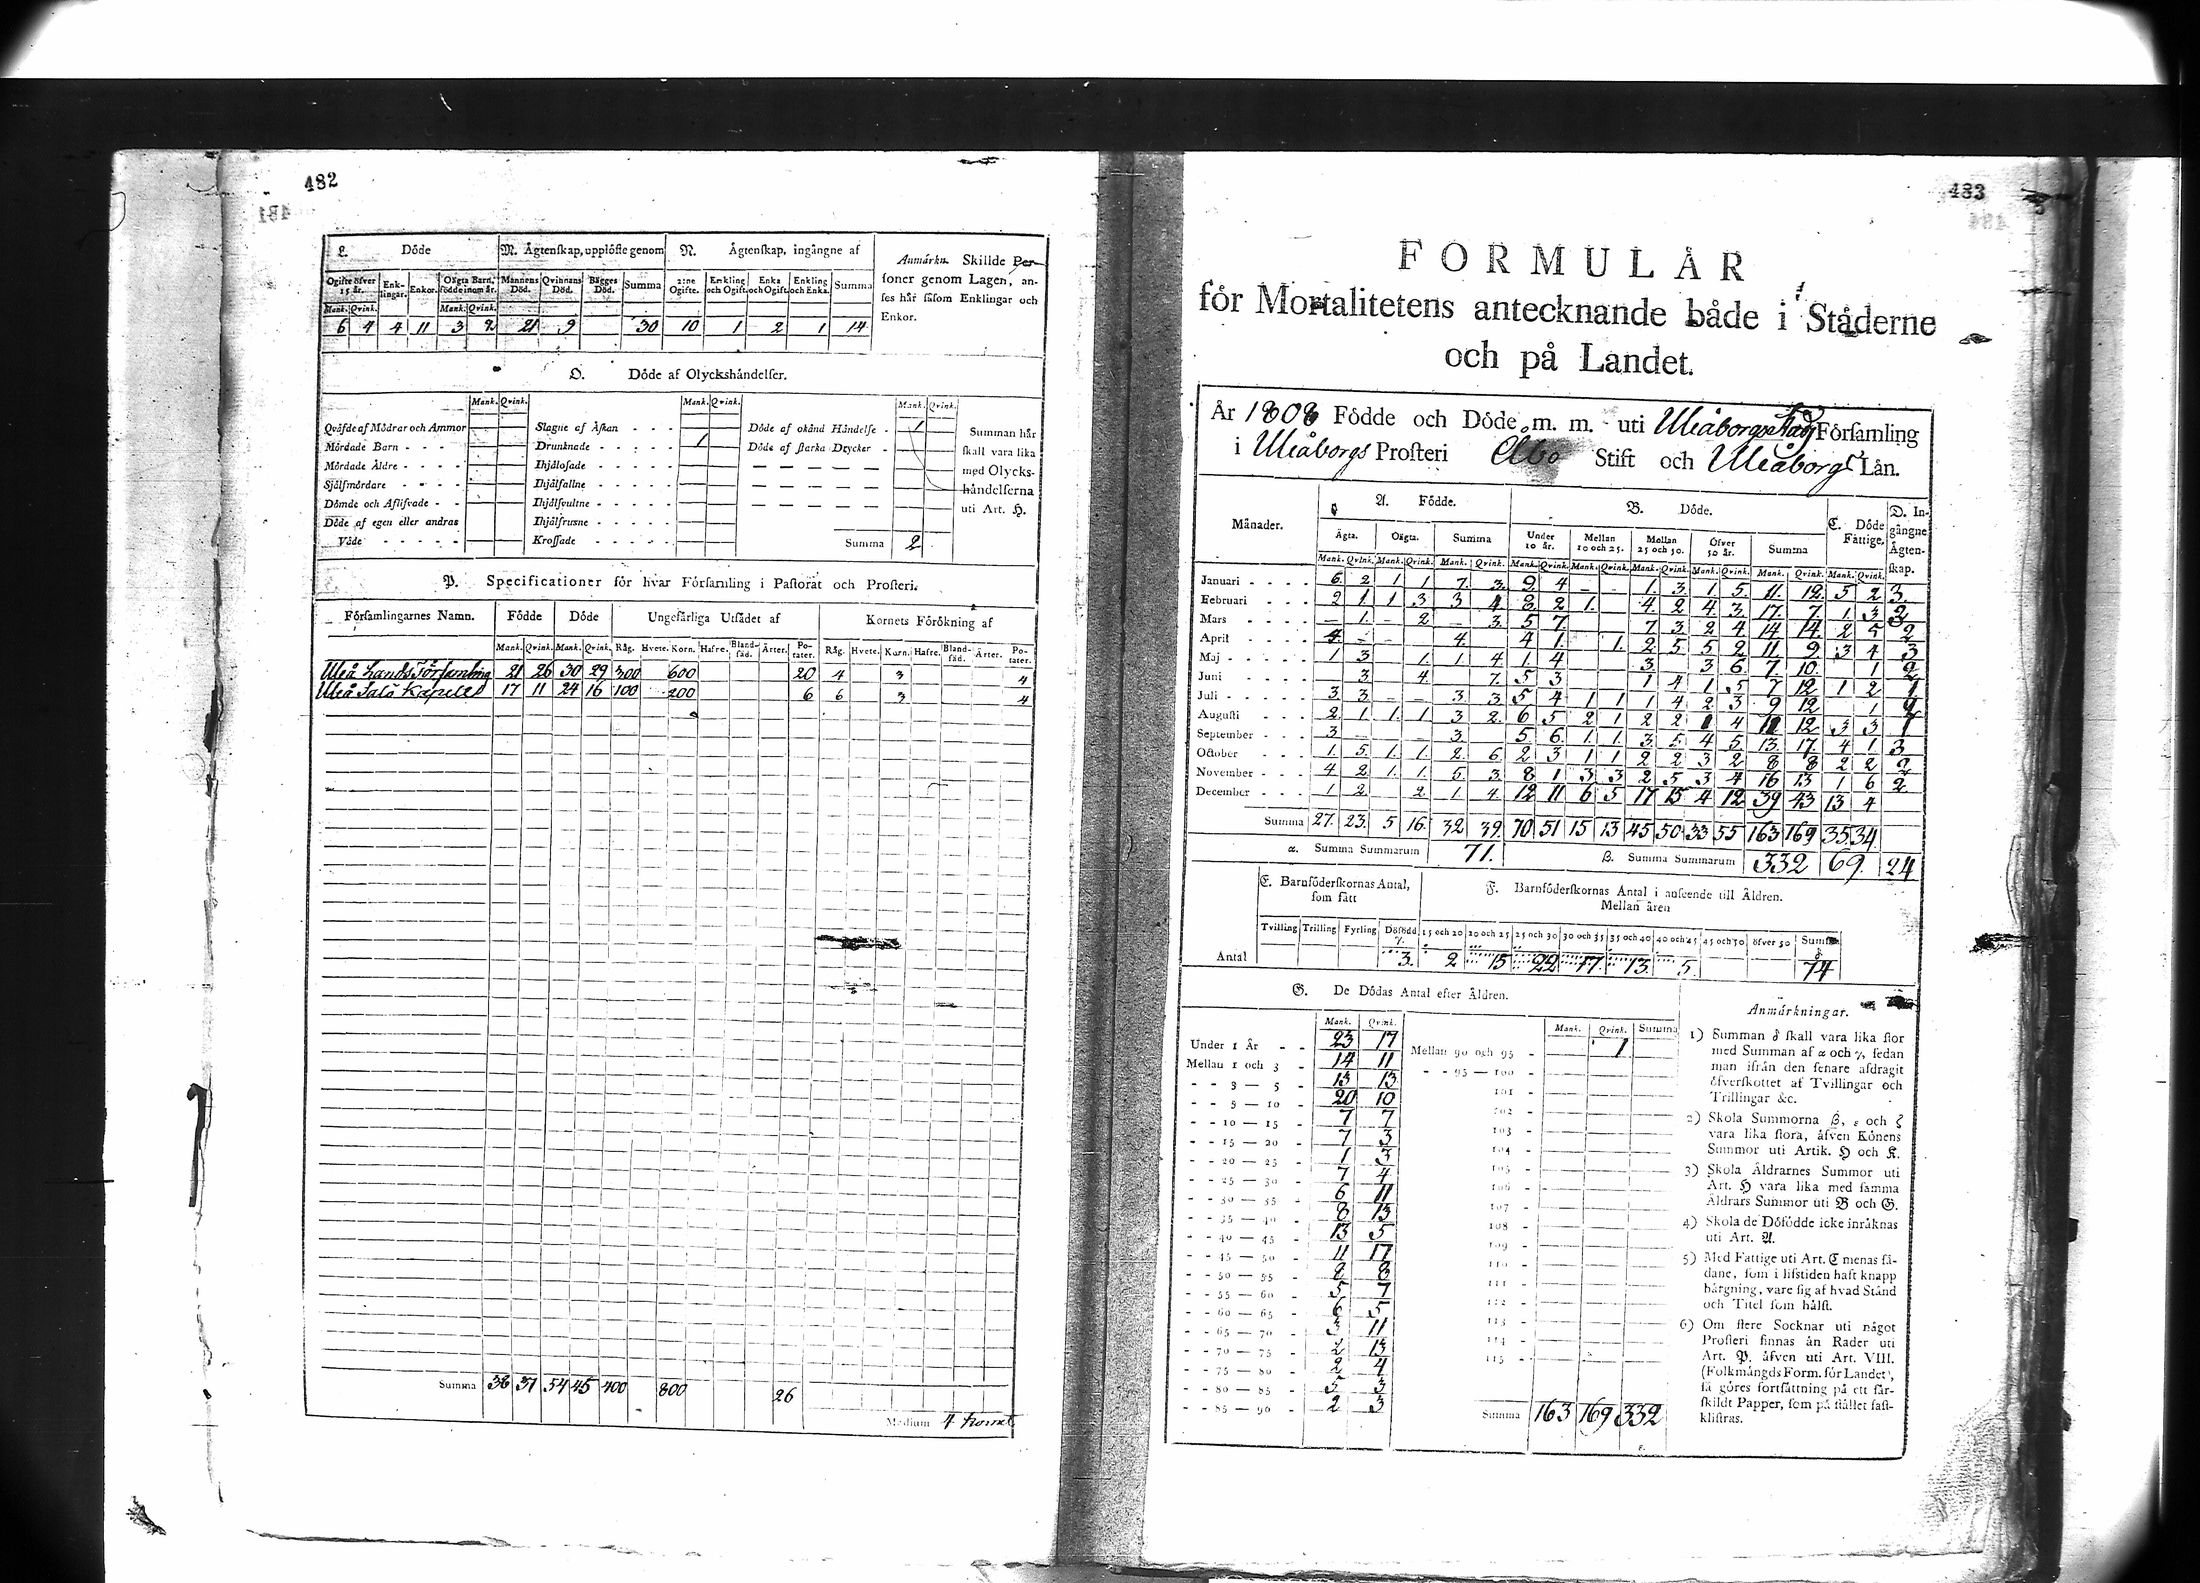 482
L. Döde
M. Ägtenskap, upplöste genom
N. Ägtenskap, ingångne af
Ogifte öfver 15 år. Enklingar. Enkor. Oägta Barn, födde inom år. Mannens Död. Qvinnans Död. Bägges Död. Summa 2:ne Ogifte. Enkling och Ogift. Enka och Ogift. Enkling och Enka. Summa
Mank. Qvink. Mank. Qvink.
6 4 4 11 3 2 21 9 30 10 1 2 1 14
Anmärkn. Skillde Per-
soner genom Lagen, an-
ses här såsom Enklingar och
Enkor.
O. Döde af Olyckshändelser.
Mank. Qvink. Mank. Qvink. Mank. Qvink.
Qväfde af Mödrar och Ammor
Mördade Barn
Mördade Äldre
Själfmördare
Dömde och Aflifvade
Döde af egen eller andras
Våde
Slagne af Åskan
Drunknade 1
Ihjälosade
Ihjälfallne
Ihjälsvultne
Ihjälfrusne
Krossade
Döde af okänd Händelse 1
Döde af starka Drycker
Summa 2
Summan här
skall vara lika
med Olycks-
händelserna
uti Art. H.
P. Specificationer för hvar Församling i Pastorat och Prosteri.
Församlingarnes Namn. Födde Döde Ungefärliga Utsädet af Kornets Förökning af
Mank. Qvink. Mank. Qvink. Råg. Hvete. Korn. Hafre. Bland-säd. Ärter. Po-tater. Råg. Hvete. Korn. Hafre. Bland-säd. Ärter. Po-tater.
Uleå Lands Församling 21 26 30 29 300 600 20 4 3 4
Uleå Salo Kapell 17 11 24 16 100 200 6 6 3 4
Summa 38 37 54 45 400 800 26
Medium 4 kornet
483
FORMULÄR
för Mortalitetens antecknande både i Städerne
och på Landet.
År 1808 Födde och Döde m. m. uti Uleåborgs Stads Församling
i Uleåborgs Prosteri Åbo Stift och Uleåborgs Län.
Månader. A. Födde. B. Döde. C. Döde Fattige. D. In-gångne Ägten-skap.
Ägta. Oägta. Summa Under 10 år. Mellan 10 och 25. Mellan 25 och 50. Öfver 50 år. Summa
Mank. Qvink. Mank. Qvink. Mank. Qvink. Mank. Qvink. Mank. Qvink. Mank. Qvink. Mank. Qvink. Mank. Qvink. Mank. Qvink.
Januari 6 2 1 1 7 3 9 4 - - 1 3 1 5 11 12 5 2 3
Februari 2 1 1 3 3 4 8 2 1 4 2 4 3 17 7 1 3 2
Mars - 1 - 2 - 3 5 7 7 3 2 4 14 14 2 5 2
April 4 - - 4 4 1 1 2 5 5 2 11 9 3 4 3
Maj 1 3 1 1 4 1 4 3 3 6 7 10 1 2
Juni 3 4 7 5 3 1 4 1 5 7 12 1 2 1
Juli 3 3 - 3 3 5 4 1 1 1 4 2 3 9 12 1 2
Augusti 2 1 1 1 3 2 6 5 2 1 2 2 1 4 11 12 3 3 1
September 3 - - 3 5 6 1 1 3 5 4 5 13 17 4 1 3
October 1 5 1 1 2 6 2 3 1 1 2 2 3 2 8 8 2 2 2
November 4 2 1 1 5 3 8 1 3 3 2 5 3 4 16 13 1 6 2
December 1 2 2 1 4 12 11 6 5 17 15 4 12 39 43 13 4
Summa 27 23 5 16 32 39 70 51 15 13 45 50 33 55 163 169 35 34
α. Summa Summarum 71. β. Summa Summarum 332 69. 24
E. Barnföderskornas Antal, som fått
F. Barnföderskornas Antal i anseende till Åldren.
Mellan åren
Tvilling Trilling Fyrling Dödfödd γ. 15 och 20 20 och 25 25 och 30 30 och 35 35 och 40 40 och 45 45 och 50 öfver 50 Summa δ
Antal 3. 2 15 22 17 13 5. 74
G. De Dödas Antal efter Åldren.
Mank. Qvink. Mank. Qvink. Summa
Under 1 År 23 17
Mellan 1 och 3 14 11
3 — 5 13 13
5 — 10 20 10
10 — 15 7 7
15 — 20 7 3
20 — 25 1 3
25 — 30 7 4
30 — 35 6 11
35 — 40 8 13
40 — 45 13 5
45 — 50 11 17
50 — 55 8 8
55 — 60 5 7
60 — 65 6 5
65 — 70 3 11
70 — 75 2 13
75 — 80 2 4
80 — 85 5 3
85 — 90 2 3
Mellan 90 och 95 1
95 — 100
101
102
103
104
105
106
107
108
109
110
111
112
113
114
115
Summa 163 169 332
Anmärkningar.
1) Summan δ skall vara lika stor
med Summan af α och γ, sedan
man ifrån den senare afdragit
öfverskottet af Tvillingar och
Trillingar &c.
2) Skola Summorna β, ε och ζ
vara lika stora, äfven Könens
Summor uti Artik. H och K.
3) Skola Åldrarnes Summor uti
Art. H vara lika med samma
Åldrars Summor uti B och G.
4) Skola de Dödfödde icke inräknas
uti Art. A.
5) Med Fattige uti Art. C menas så-
dane, som i lifstiden haft knapp
bärgning, vare sig af hvad Stånd
och Titel som hälst.
6) Om flere Socknar uti något
Prosteri finnas än Rader uti
Art. P. äfven uti Art. VIII.
(Folkmängds Form. för Landet),
så göres fortsättning på ett sär-
skildt Papper, som på stället fast-
klistras.